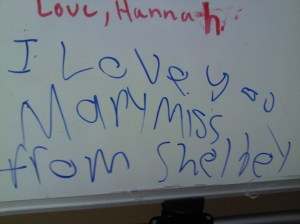 Love, Hannah
I Love you
Mary Miss
from Shelbey